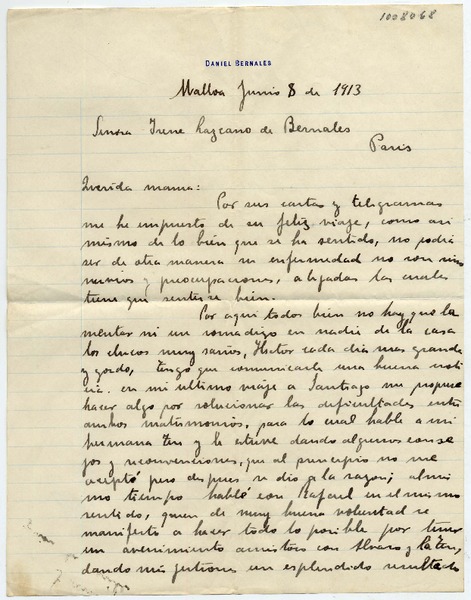 1008068
DANIEL BERNALES
Malloa Junio 8 de 1913
Senora Irene Lazcano de Bernales
Paris
Querida mama:
Por sus cartas y telegramas
me he impuesto de su feliz viaje, como asi
mismo de lo bien que se ha sentido, no podia
ser de otra manera su enfermedad no son sino
nervios y preocupaciones, alejadas las cuales
tiene que sentirse bien.
Por aqui todos bien no hay que la
mentar ni un romadizo en nadie de la casa
los chicos muy sanos, Hector cada dia mas grande
y gordo, tengo que comunicarla una buena noti
cia. en mi ultimo viaje a Santiago me propuse
hacer algo por solucionar las dificultades entre
ambos matrimonios, para lo cual hable a mi
hermana Ten y la estuve dando algunos conse
jos y reconvenciones, que al principio no me
aceptó pero despues se dio a la razon; al mis
mo tiempo hablé con Rafael en el mismo
sentido, quien de muy buena voluntad se
manifesto a hacer todo lo posible por tener
un avenimiento amistoso con Alvaro y la Ten,
dando mis gestiones un esplendido resultado